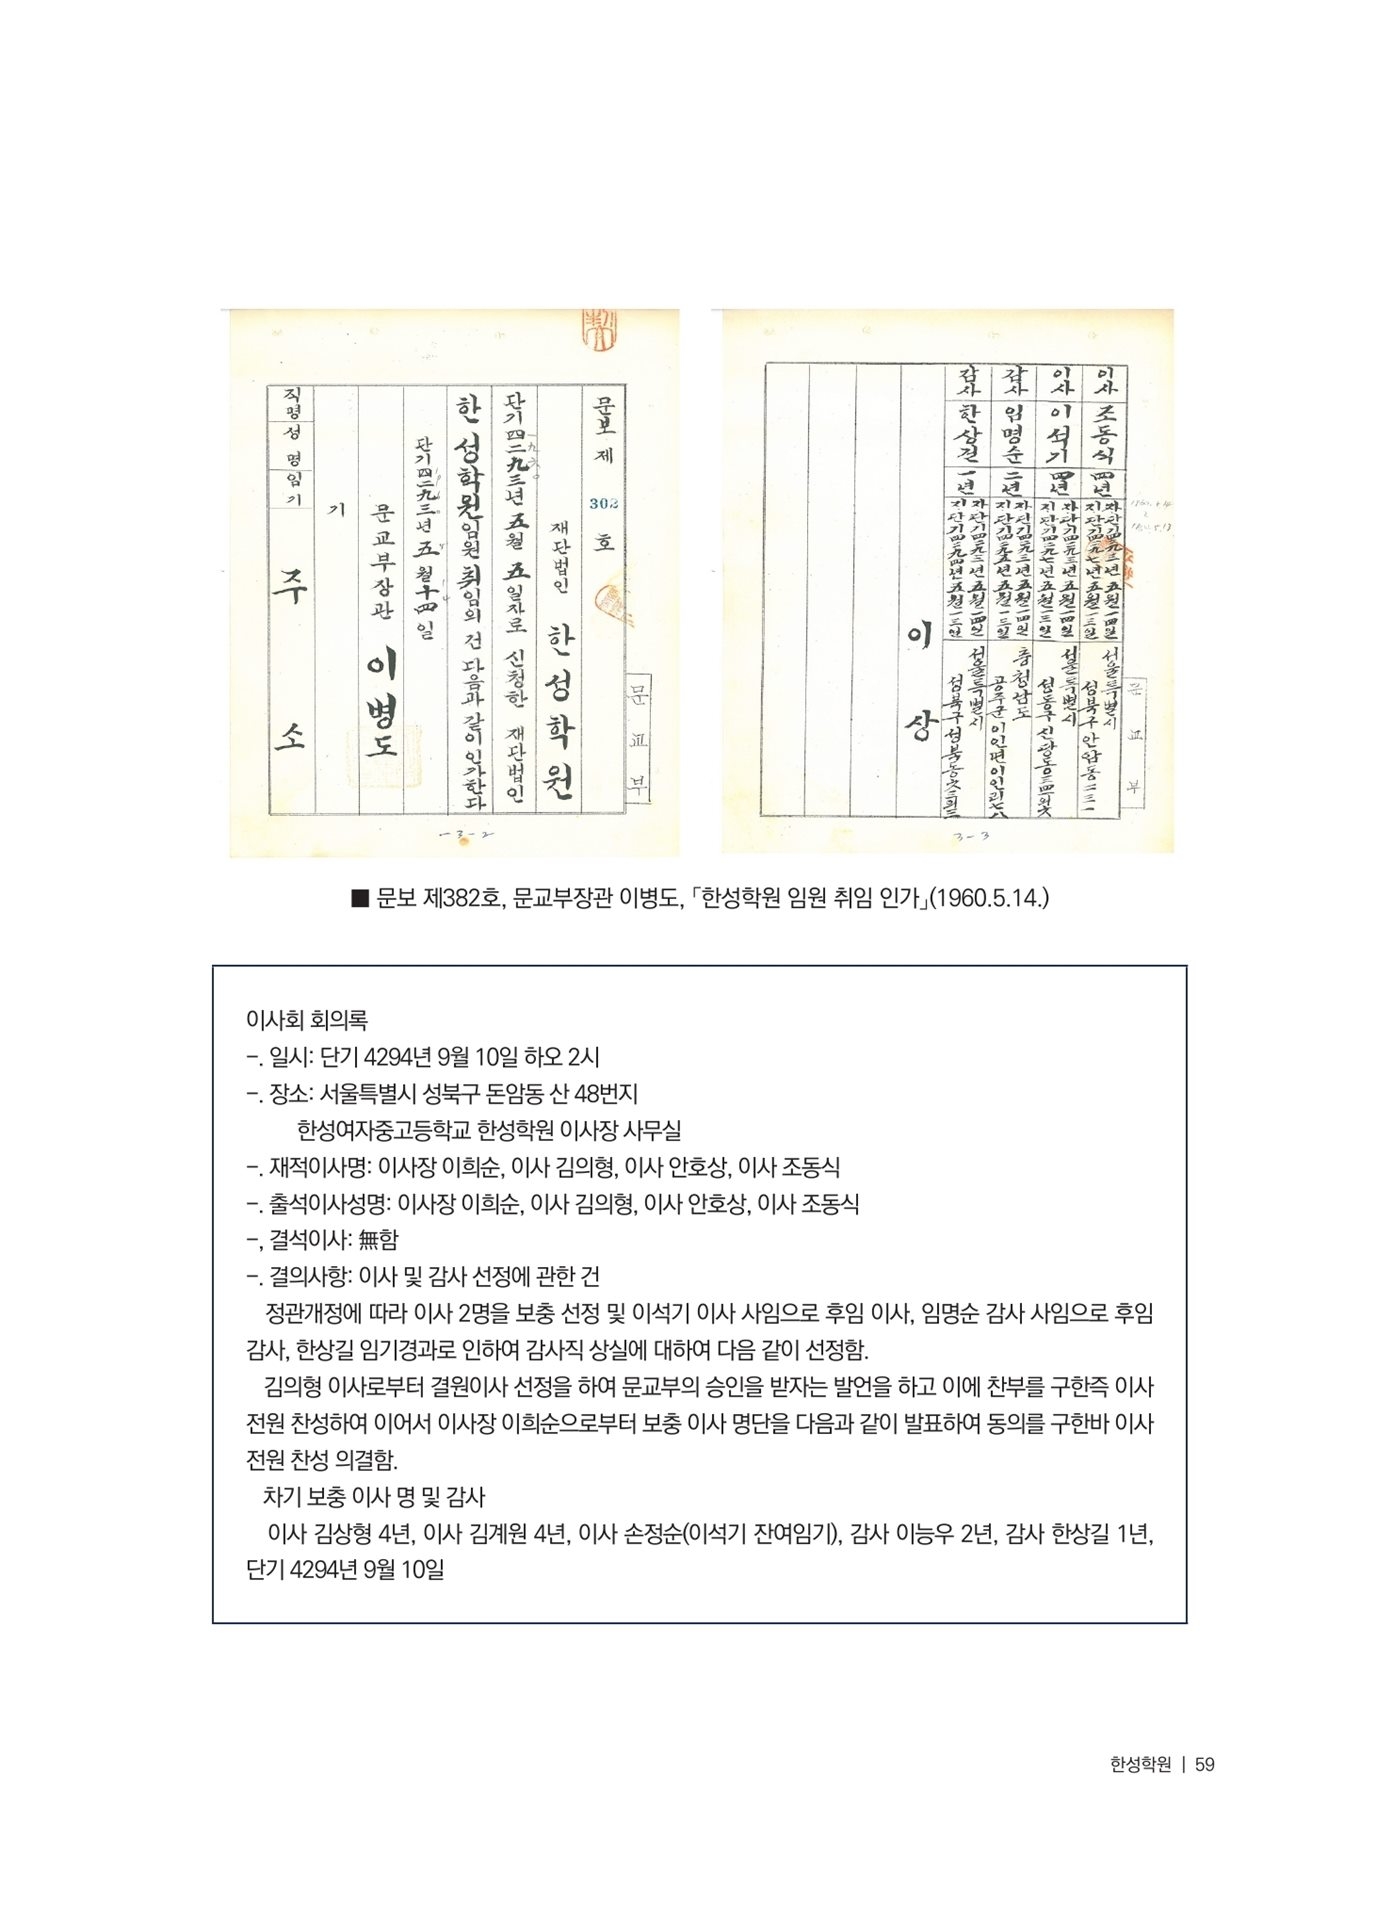 문보 제 302 호
재단법인 한성학원
단기四二九三년 五월 五일자로 신청한 재단법인
한성학원임원취임의 건 다음과 같이 인가한다
단기四二九三년 五월十四일
문교부장관 이병도
기
직명 성명 임기 주소
문교부
-3-2
이사 조동식 四년 자단기四二九三년五월一四일 지단기四二九七년五월一三일 서울특별시 성북구 안암동 二三一
이사 이석기 四년 자단기四二九三년五월一四일 지단기四二九七년五월一三일 서울특별시 성동구 신당동
감사 임명순 二년 자단기四二九三년五월一四일 지단기四二九五년五월一三일 충청남도 공주군 이인면 이인리 七八
감사 한상길 一년 자단기四二九三년五월一四일 지단기四二九四년五월一三일 서울특별시 성북구 성북동
이상
문교부
3-3
■ 문보 제382호, 문교부장관 이병도, 「한성학원 임원 취임 인가」(1960.5.14.)
이사회 회의록
-. 일시: 단기 4294년 9월 10일 하오 2시
-. 장소: 서울특별시 성북구 돈암동 산 48번지
한성여자중고등학교 한성학원 이사장 사무실
-. 재적이사명: 이사장 이희순, 이사 김의형, 이사 안호상, 이사 조동식
-. 출석이사성명: 이사장 이희순, 이사 김의형, 이사 안호상, 이사 조동식
-, 결석이사: 無함
-. 결의사항: 이사 및 감사 선정에 관한 건
정관개정에 따라 이사 2명을 보충 선정 및 이석기 이사 사임으로 후임 이사, 임명순 감사 사임으로 후임
감사, 한상길 임기경과로 인하여 감사직 상실에 대하여 다음 같이 선정함.
김의형 이사로부터 결원이사 선정을 하여 문교부의 승인을 받자는 발언을 하고 이에 찬부를 구한즉 이사
전원 찬성하여 이어서 이사장 이희순으로부터 보충 이사 명단을 다음과 같이 발표하여 동의를 구한바 이사
전원 찬성 의결함.
차기 보충 이사 명 및 감사
이사 김상형 4년, 이사 김계원 4년, 이사 손정순(이석기 잔여임기), 감사 이능우 2년, 감사 한상길 1년,
단기 4294년 9월 10일
한성학원 | 59